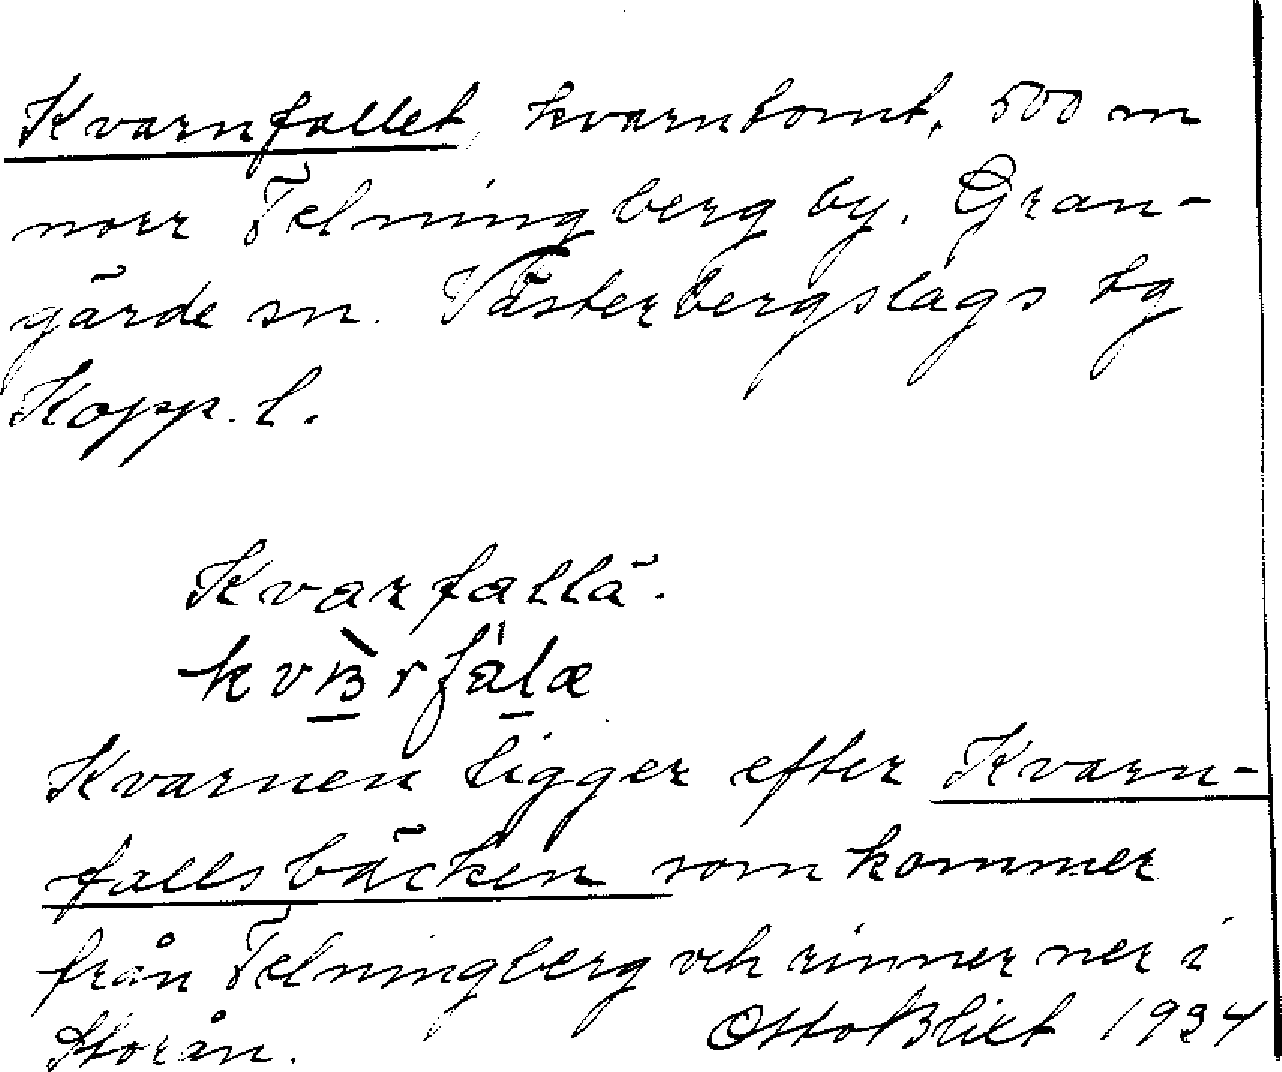 Kvarnfallet, kvarntomt, 500 m
norr Telningberg by. Gran-
gärde sn. Västerbergslags tg
Kopp. l.
Kvarfallä.
Kvarnen ligger efter Kvarn-
fallsbäcken som kommer
från Telningberg och rinner ner i
Storån. Otto Blixt 1934